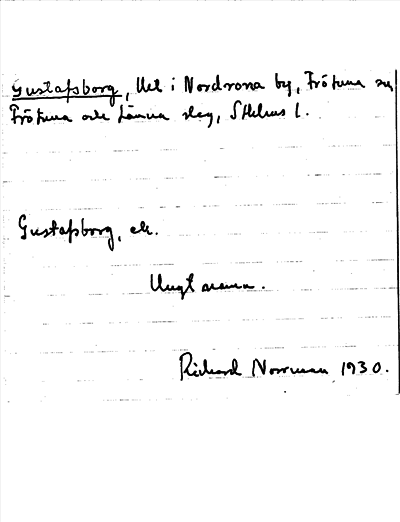 Gustafsborg, lht i Nordrona by, Frötuna sn,
Frötuna och Länna slag, Sthlms l.
Gustafsborg, ek.
Ungt namn.
Richard Norrman 1930.